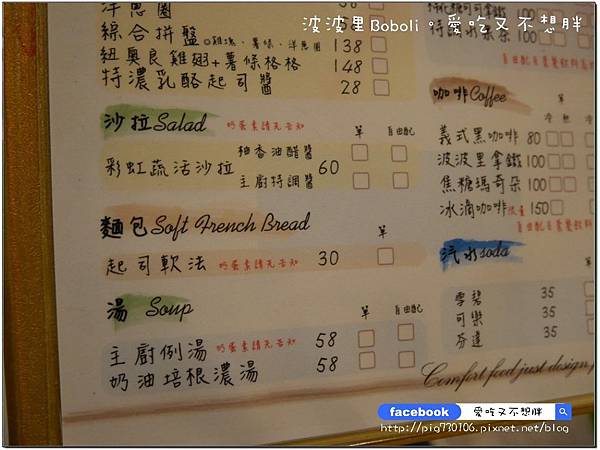 波波里Boboli。愛吃又不想胖
洋蔥圈
綜合拼盤 @雞塊、薯條、洋蔥圈 138
紐奧良雞翅+薯條格格 148
特濃乳酪起司醬 28
沙拉Salad 奶蛋素請先告知 單 自由配
彩虹蔬活沙拉 柚香油醋醬 60
主廚特調醬
麵包Soft French Bread 單
起司軟法 奶蛋素請先告知 30
湯 Soup 單 自由配
主廚例湯 奶蛋素請先告知 58
奶油培根濃湯 58
100
咖啡Coffee 單
冷 熱
義式黑咖啡 80
波波里拿鐵 100
焦糖瑪奇朵 100
冰滴咖啡限量 150
汽水soda
雪碧 35
可樂 35
芬達 35
Comfort food just design
facebook 愛吃又不想胖
http://pig730106.pixnet.net/blog